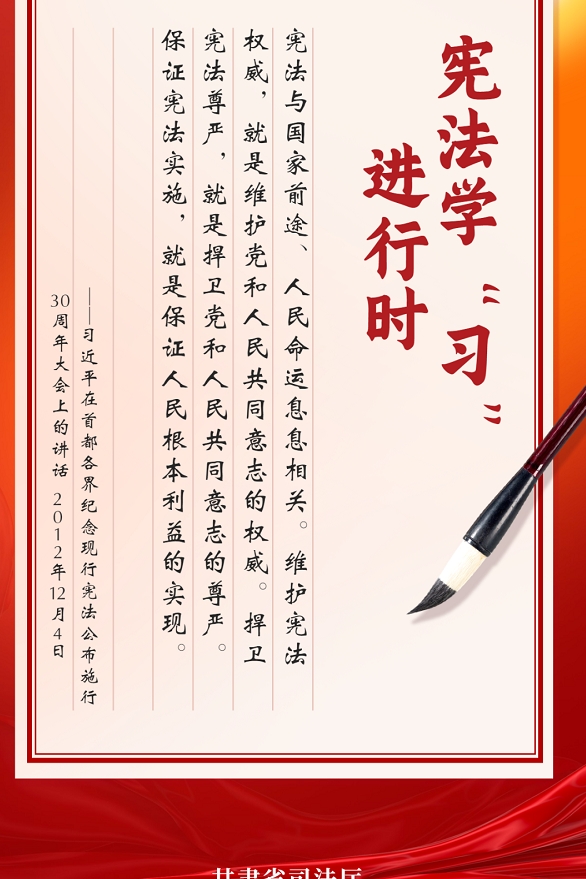 宪法学“习”
进行时
宪法与国家前途、人民命运息息相关。维护宪法
权威，就是维护党和人民共同意志的权威。捍卫
宪法尊严，就是捍卫党和人民共同意志的尊严。
保证宪法实施，就是保证人民根本利益的实现。
——习近平在首都各界纪念现行宪法公布施行
30周年大会上的讲话 2012年12月4日
甘肃省司法厅